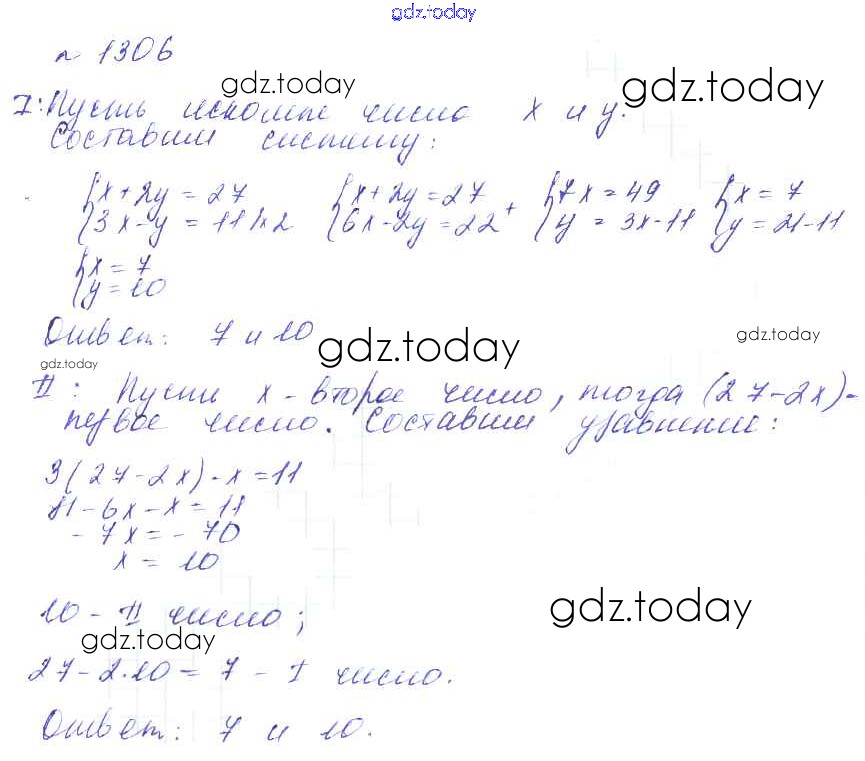 gdz.today
№ 1306
gdz.today gdz.today
I: Пусть искомые число x и y.
Составим систему:
{x + 2y = 27 {x + 2y = 27 + {7x = 49 {x = 7
{3x - y = 11 |×2 {6x - 2y = 22 {y = 3x - 11 {y = 21 - 11
{x = 7
{y = 10
Ответ: 7 и 10
gdz.today gdz.today
gdz.today
II: Пусть x - второе число, тогда (27 - 2x) -
первое число. Составим уравнение:
3(27 - 2x) - x = 11
81 - 6x - x = 11
- 7x = - 70
x = 10
10 - II число;
gdz.today gdz.today
27 - 2·10 = 7 - I число.
Ответ: 7 и 10.